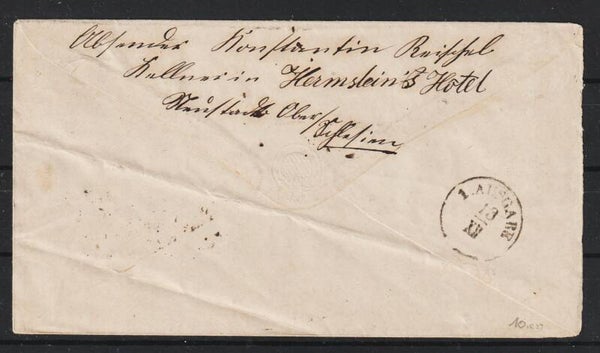 Absender Konstantin Reischel
Kellner in Hermstein's Hotel
Neustadt Ober/
Schlesien
1. AUSGABE
13
XII